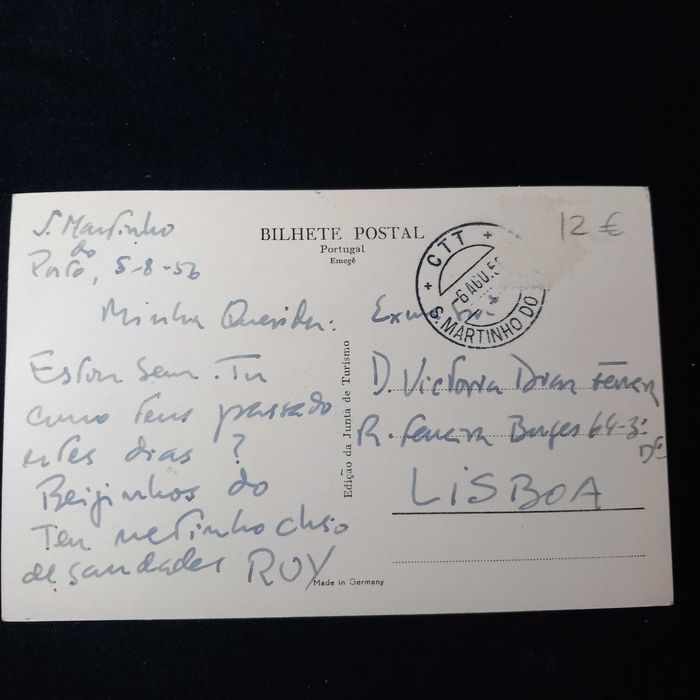 S. Martinho
do
Porto, 5-8-56
Minha Querida:
Estou bem. Tu
como tens passado
estes dias?
Beijinhos do
Teu netinho cheio
de saudades RUY
BILHETE POSTAL
Portugal
Emegê
Edição da Junta de Turismo
CTT
6 AGO. 5
S. MARTINHO DO
12 €
Exma
D. Victoria Dias
R. Ferreira Borges 64-3º
Dº
LISBOA
Made in Germany